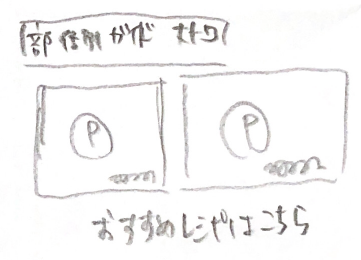 部位別ガイド
P P
おすすめレシピはこちら